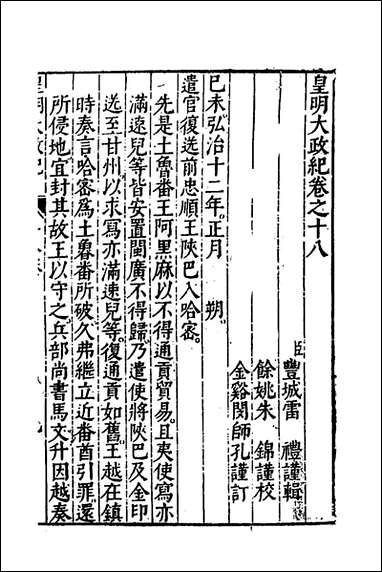 皇明大政紀卷之十八
臣豐城雷　禮謹輯
餘姚朱　錦謹校
金谿閔師孔謹訂
巳未弘治十二年正月　朔
遣官復送前忠順王陝巴入哈密
先是土魯番王阿黑麻以不得通貢貿易且夷使寫亦
滿速兒等皆安置閩廣不得歸乃遣使將陝巴及金印
送至甘州以求寫亦滿速兒等復通貢如舊王越在鎮
時奏言哈密爲土魯番所破久弗繼立近番酋引罪還
所侵地宜封其故王以守之兵部尚書馬文升因越奏
皇明大政紀